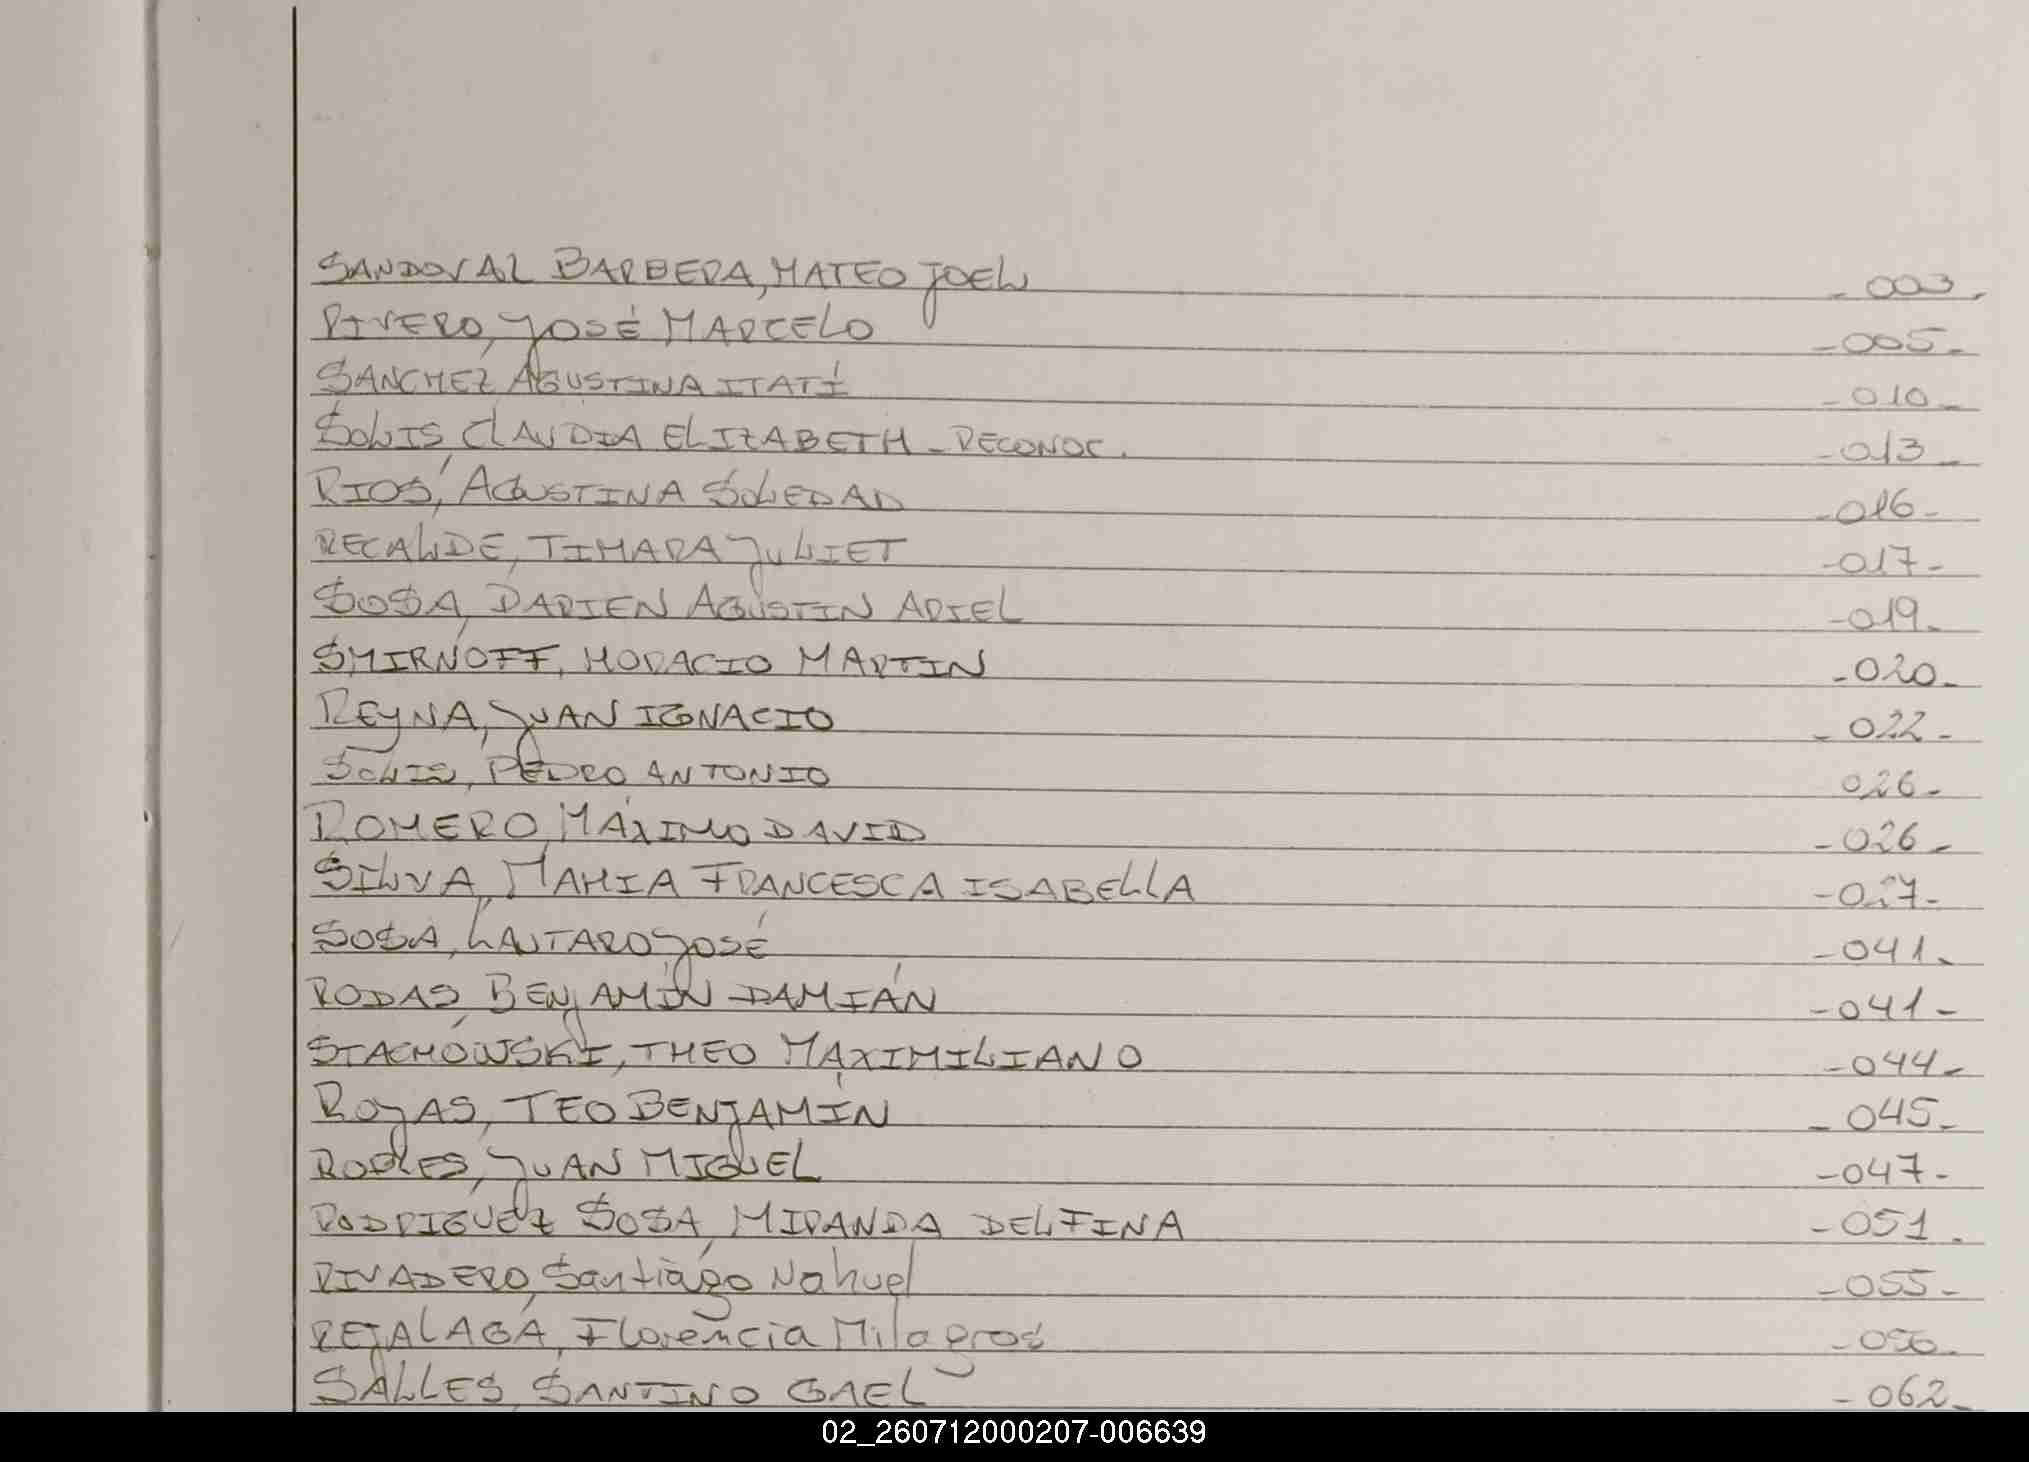 SANDOVAL BARBERA, MATEO JOEL - 003 -
RIVERO, JOSÉ MARCELO - 005 -
SANCHEZ, AGUSTINA ITATÍ - 010 -
SOLIS, CLAUDIA ELIZABETH - RECONOC. - 013 -
RIOS, AGUSTINA SOLEDAD - 016 -
RECALDE, TIMARA JULIET - 017 -
SOSA, DARIEN AGUSTIN ARIEL - 019 -
SMIRNOFF, HORACIO MARTIN - 020 -
REYNA, JUAN IGNACIO - 022 -
SOLIS, PEDRO ANTONIO 026 -
ROMERO, MÁXIMO DAVID - 026 -
SILVA, MAHIA FRANCESCA ISABELLA - 027 -
SOSA, LAUTARO JOSÉ - 041 -
RODAS, BENJAMÍN DAMIÁN - 041 -
STACHOWSKI, THEO MAXIMILIANO - 044 -
ROJAS, TEO BENJAMÍN - 045 -
ROBLES, JUAN MIGUEL - 047 -
RODRIGUEZ SOSA, MIRANDA DELFINA - 051 -
RIVADERO, Santiago Nahuel - 055 -
REJALAGA, Florencia Milagros - 056 -
SALLES, SANTINO GAEL - 062 -
02_260712000207-006639